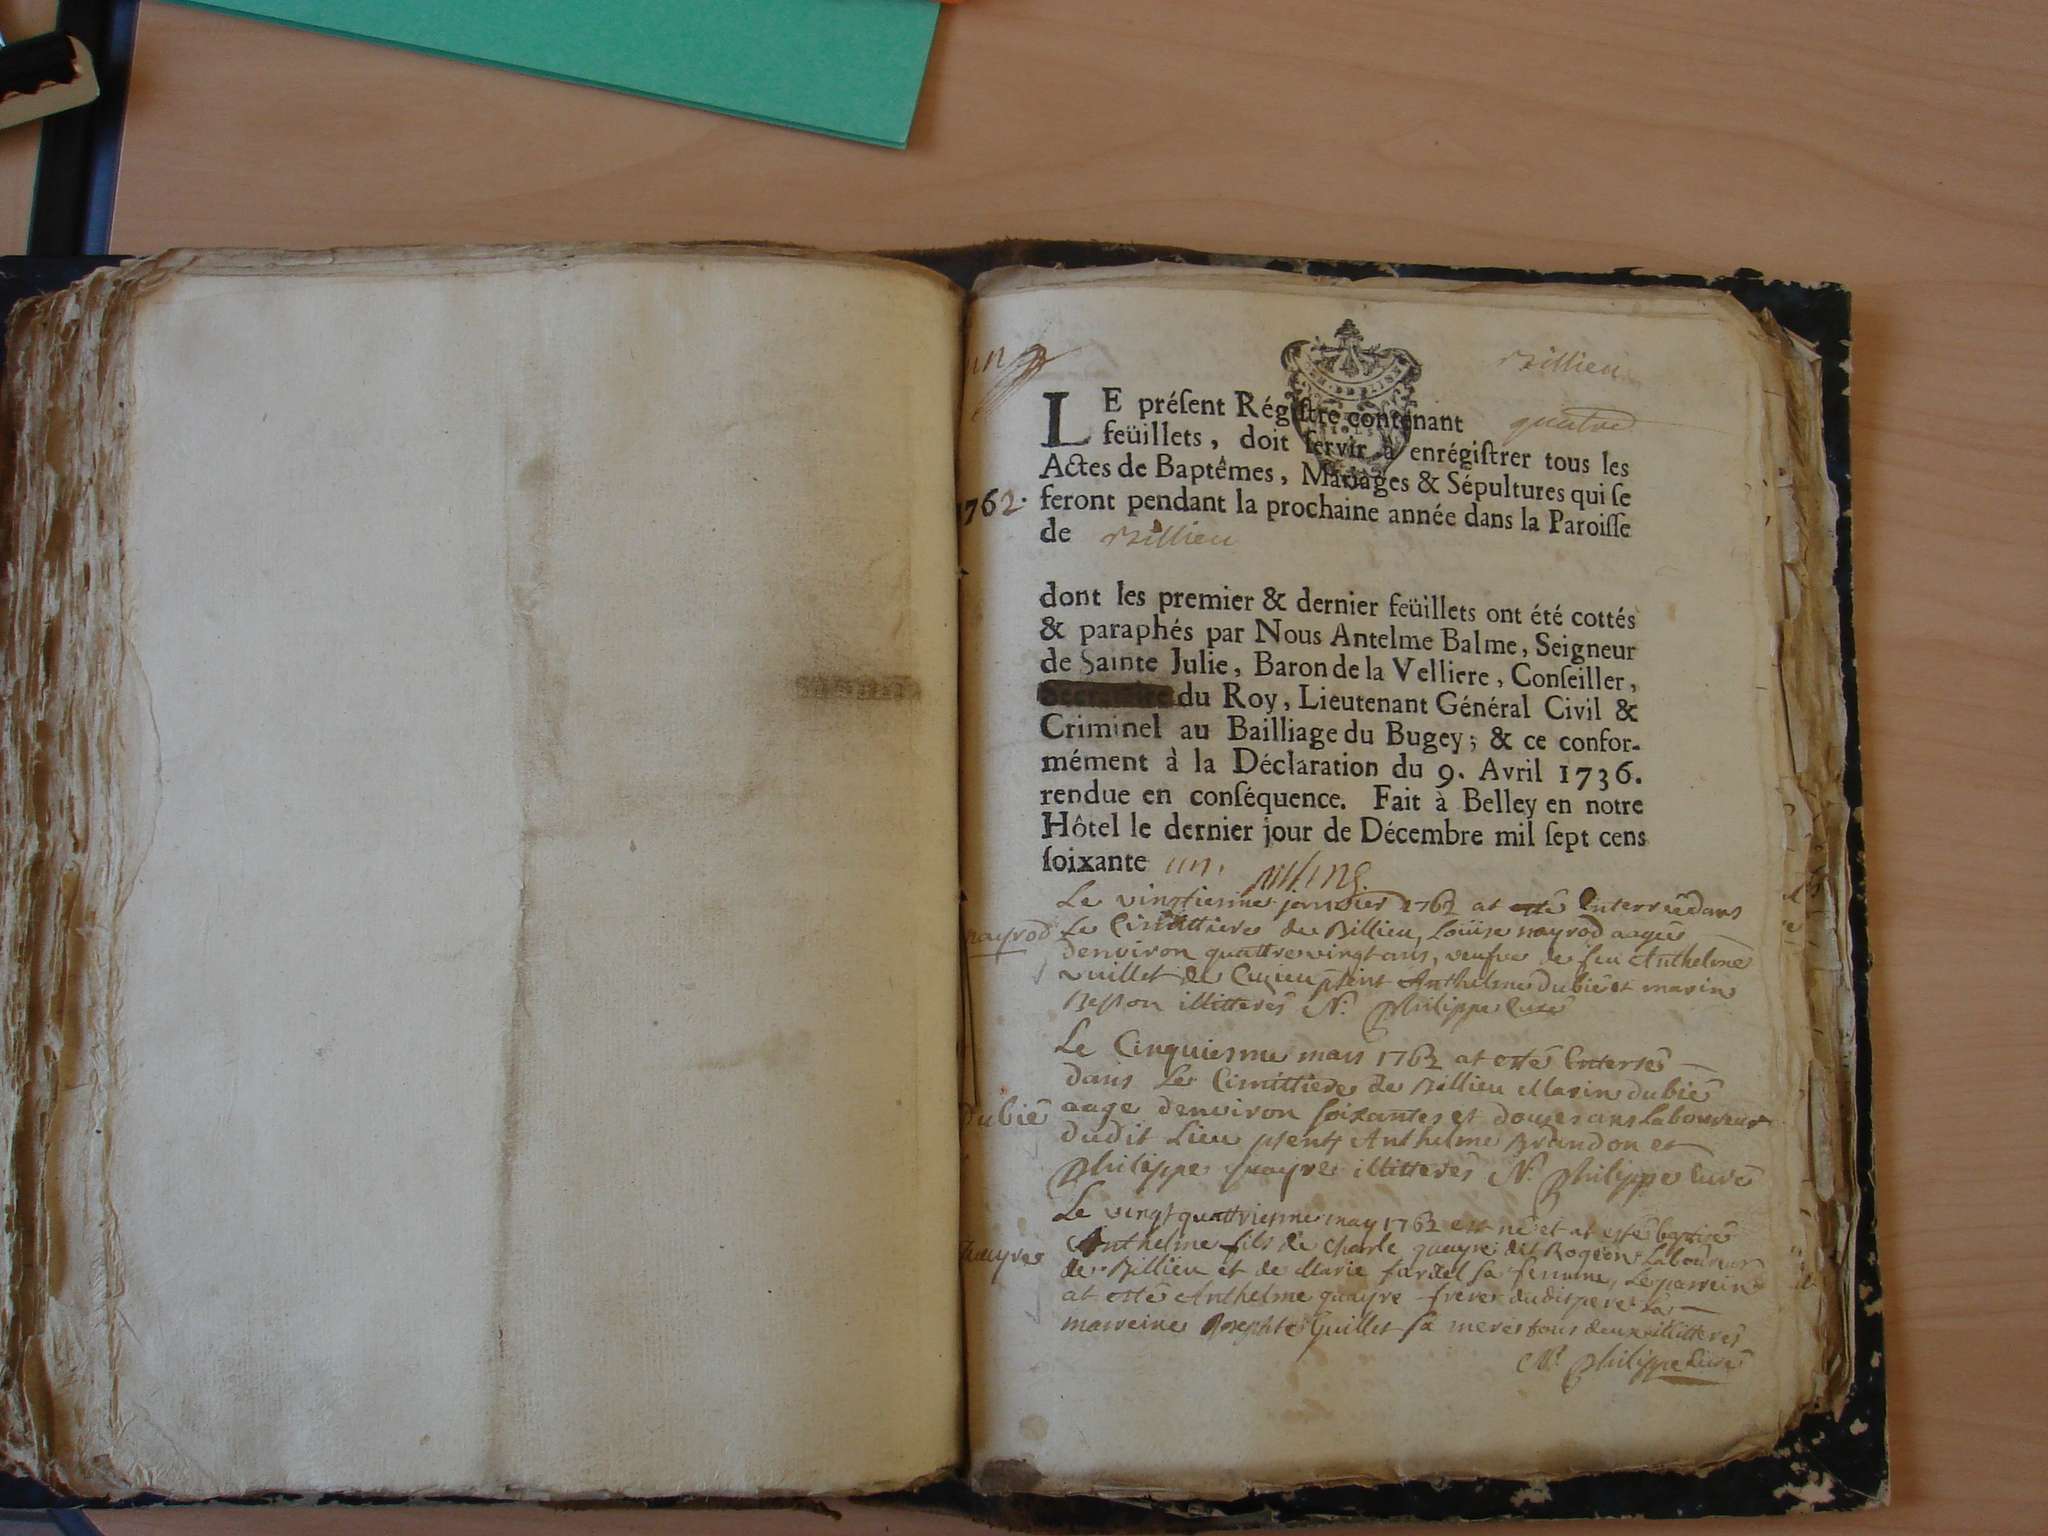 un
Billieu
LE préſent Régiſtre contenant quatre
feüillets, doit ſervir à enrégiſtrer tous les
Actes de Baptêmes, Mariages & Sépultures qui ſe
1762. feront pendant la prochaine année dans la Paroiſſe
de Billieu
dont les premier & dernier feüillets ont été cottés
& paraphés par Nous Antelme Balme, Seigneur
de Sainte Julie, Baron de la Velliere, Conſeiller,
du Roy, Lieutenant Général Civil &
Criminel au Bailliage du Bugey; & ce confor-
mément à la Déclaration du 9. Avril 1736.
rendue en conſéquence. Fait à Belley en notre
Hôtel le dernier jour de Décembre mil ſept cens
ſoixante un.
Le vingtienne janvier 1762 at esté Enterrée dans
nayrod Le Cimittiere de Billieu, Loüise nayrod aagée
denviron quattrevingt ans, veufve de feu Anthelme
vuillet de Cuzieu pñts Anthelme Dubié et marin
Besson illitterés N. Philippe Curé
Le Cinquiesme mars 1762 at esté Enterré
dans Le Cimittiere de Billieu Marin dubié
Dubié aage denviron soixantes et douzes ans Laboureur
dudit Lieu pñts Anthelme Brandon et
Philippe quayre illitterés N. Philippe Curé
Le vingtquattriesme may 1762 est né et at esté baptisé
quayre Anthelme fils de Charle quayre dit Rogeon Laboureur
de Billieu et de Marie fardel sa femme, Le parrein
at esté Anthelme quayre frere dudit pere La
marreine Josephte Guillet sa mere tous deux illitterés
N. Philippe Curé